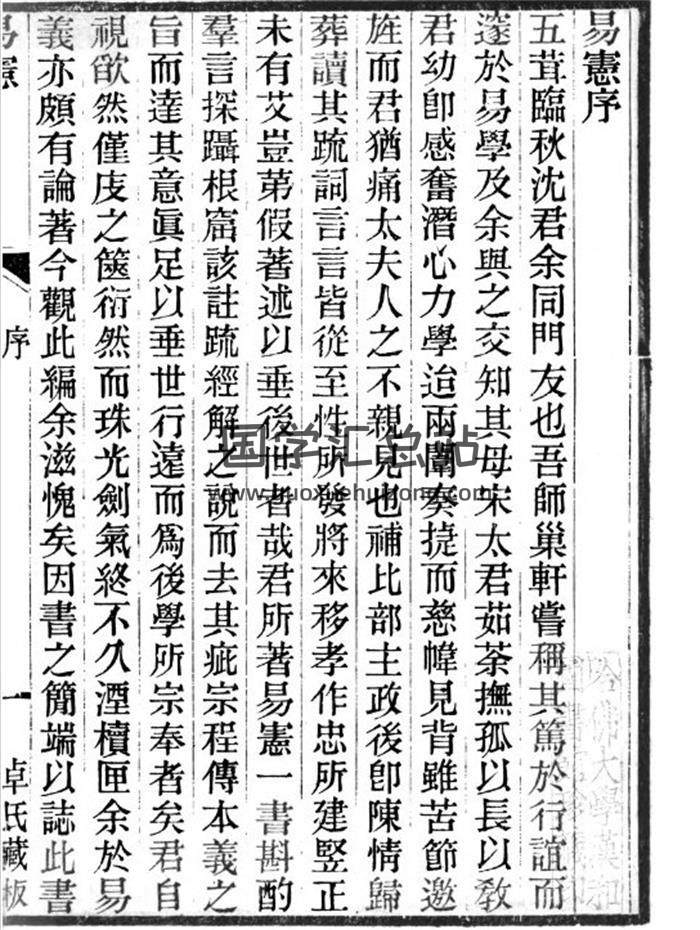 易憲序
五茸臨秋沈君余同門友也吾師巢軒嘗稱其篤於行誼而
邃於易學及余與之交知其母宋太君茹荼撫孤以長以敎
君幼卽感奮潛心力學迨兩闈奏捷而慈幃見背雖苦節邀
旌而君猶痛太夫人之不親見也補比部主政後卽陳情歸
葬讀其疏詞言言皆從至性所發將來移孝作忠所建豎正
未有艾豈第假著述以垂後世者哉君所著易憲一書斟酌
羣言探躡根窟該註疏經解之說而去其疵宗程傳本義之
旨而達其意眞足以垂世行遠而爲後學所宗奉者矣君自
視欿然僅庋之篋衍然而珠光劍氣終不久湮櫝匣余於易
義亦頗有論著今觀此編余滋愧矣因書之簡端以誌此書
易憲
序
一
卓氏藏板
国学汇总站
www.guoxuehuizong.com
哈佛大學漢和